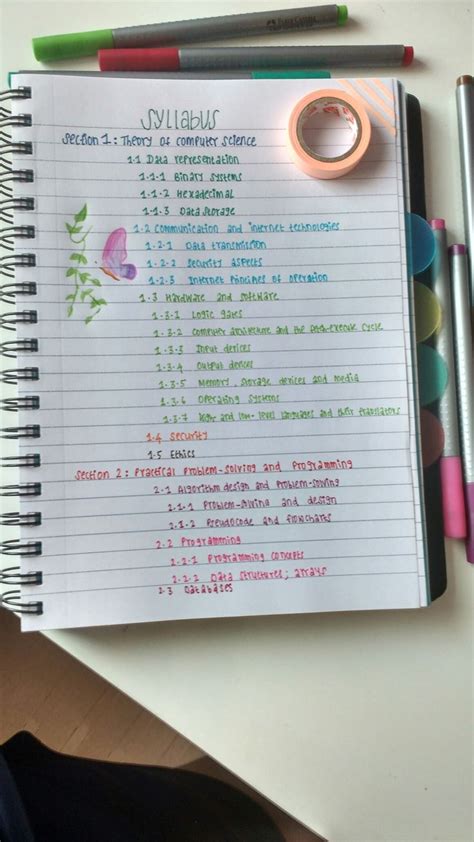 FABER-CASTELL
Syllabus
Section 1: Theory of computer science
1.1 Data representation
1.1.1 Binary systems
1.1.2 Hexadecimal
1.1.3 Data storage
1.2 Communication and internet technologies
1.2.1 Data transmission
1.2.2 Security aspects
1.2.3 Internet Principles of operation
1.3 Hardware and software
1.3.1 Logic gates
1.3.2 Computer architecture and the fetch-execute cycle
1.3.3 Input devices
1.3.4 Output devices
1.3.5 Memory, storage devices and media
1.3.6 Operating systems
1.3.7 High and low-level languages and their translators
1.4 Security
1.5 Ethics
Section 2: Practical Problem-solving and Programming
2.1 Algorithm design and Problem-solving
2.1.1 Problem-solving and design
2.1.2 Pseudocode and flowcharts
2.2 Programming
2.2.1 Programming concepts
2.2.2 Data structures; arrays
2.3 Databases